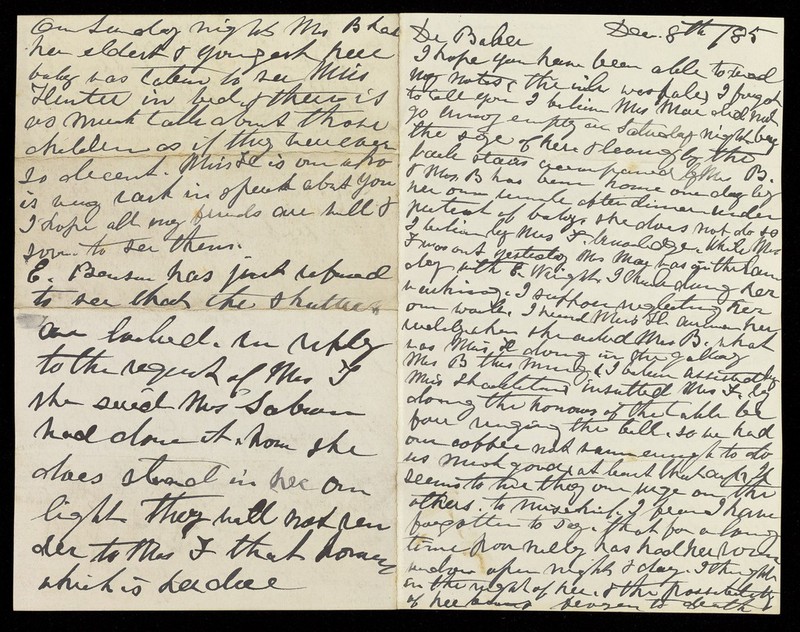 Dr Baker Dec 8th /85
I hope you have been able to read
my notes, the ink was pale, I forgot
to tell you I believe Mrs Mac did not
go away empty on Saturday night being
the size of here & leaving by the
back stairs accompanied by Mrs B.
& Mrs B has been home one day by
her own after dinner under
pretext of baby. she does not do so
I believe by Mrs F. knowledge. While Mrs
F was out yesterday Mrs Mac was in the
day with E. Wright. I
washing. I suppose neglecting her
own work. I heard Miss H answer her
when she asked Mrs B. what
was Miss H doing in the gallery
Mrs B this morng. I believe assisted by
Miss insulted Mrs F. by
doing the honours of the table be
fore ringing the bell. so we had
our coffee not warm enough to do
us much good, at least that cup. It
seems to me they one urge on the
others. to mischief. I fear I have
forgotten to say. that for a long
time poor Nelly has had her
window open night & day. I thought
on the night of her. & the possibility
of her being frozen to death
On Sunday night Mrs B had
her eldest & youngest here
baby was taken to see Miss
Hunter in bed, & there is
as much talk about those
children as if they were ever
so decent. Miss H is one who
is very rash in speech abt you
I hope all my friends are well &
soon to see them.
E. Benson has just refused
to see that the shutters
are locked. in reply
to the request of Mrs F
she said Mrs
had done it. how she
does stand in her own
light they will not ren
der to Mrs F that homage
which is her due